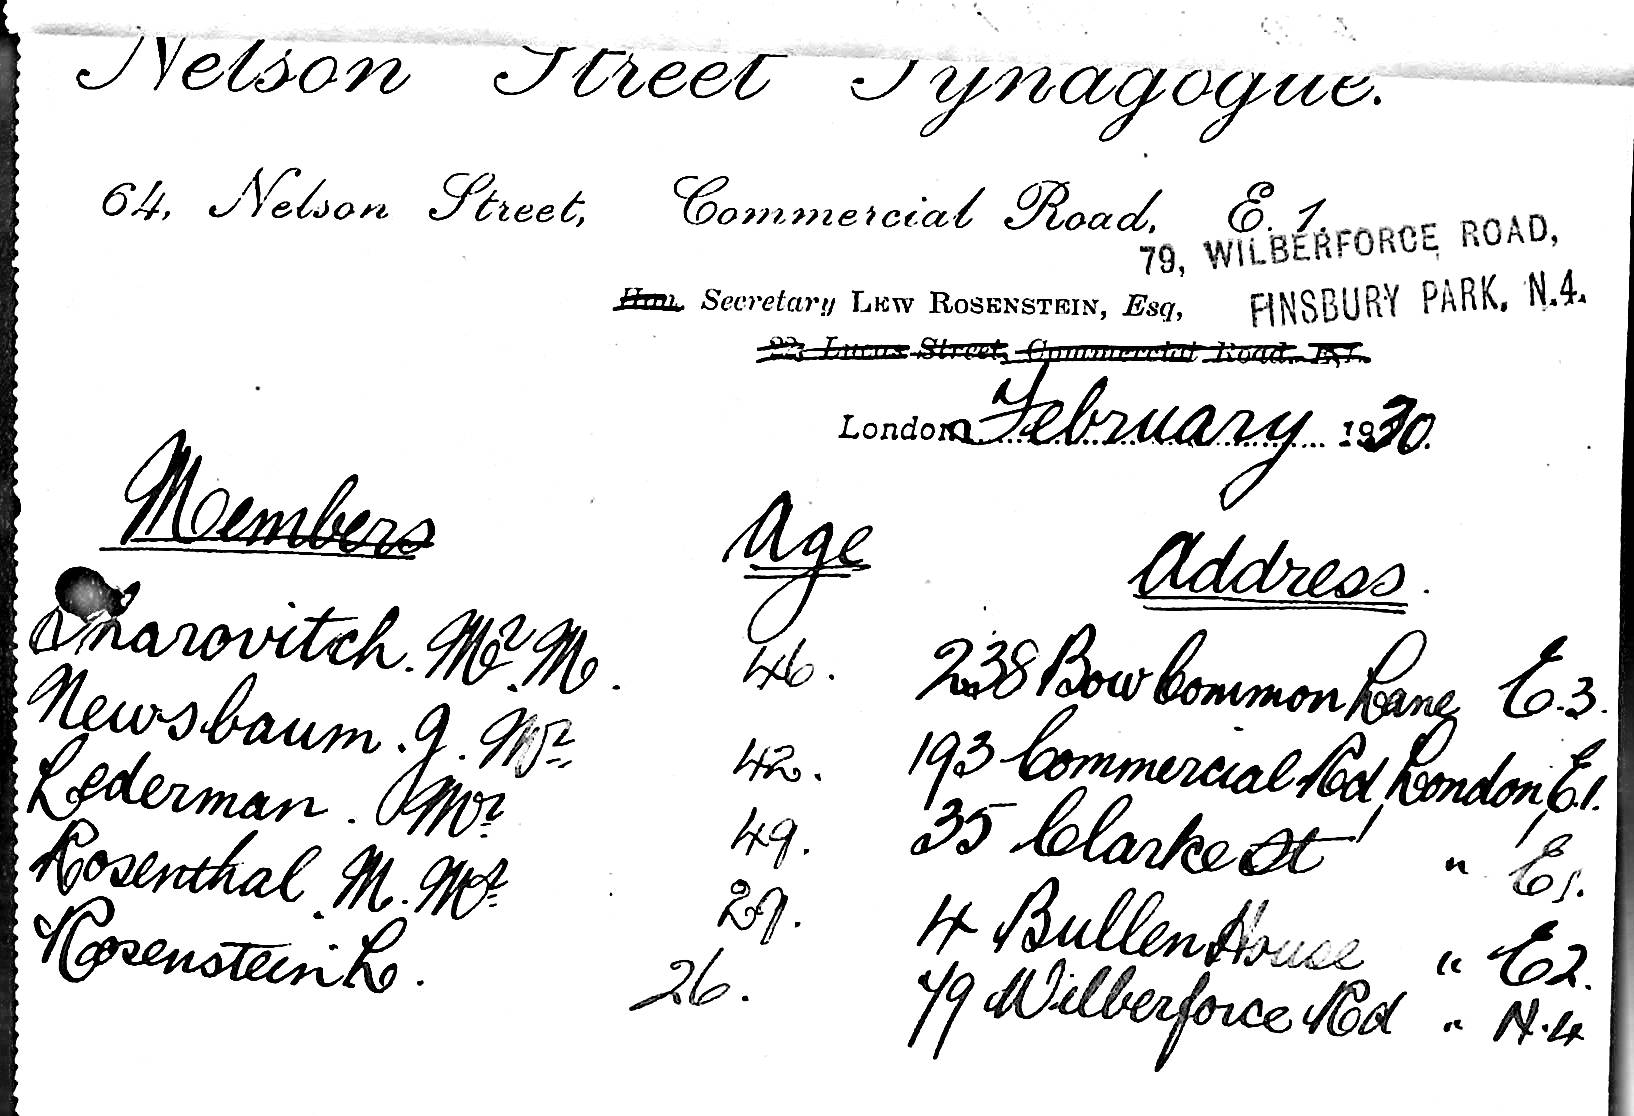 Nelson Street Synagogue.
64, Nelson Street, Commercial Road, E. 1.
79, WILBERFORCE ROAD,
Hon. Secretary LEW ROSENSTEIN, Esq,
FINSBURY PARK. N.4.
22, Lucas Street, Commercial Road. E.1.
London February 1930.
Members Age Address.
Mr. M. 46. 238 Bow Common Lane E.3.
Newsbaum. G. Mr 42. 193 Commercial Rd, London, E.1.
Lederman. Mr 49. 35 Clarke St " E1.
Rosenthal. M. Mr 29. 4 Bullen House " E2.
Rosenstein L. 26. 79 Wilberforce Rd " N.4